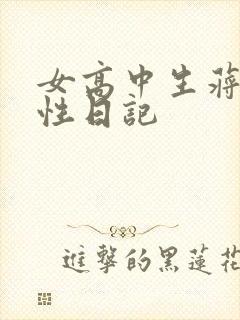 女高中生蔣
性日記
進擊的黑蓮花